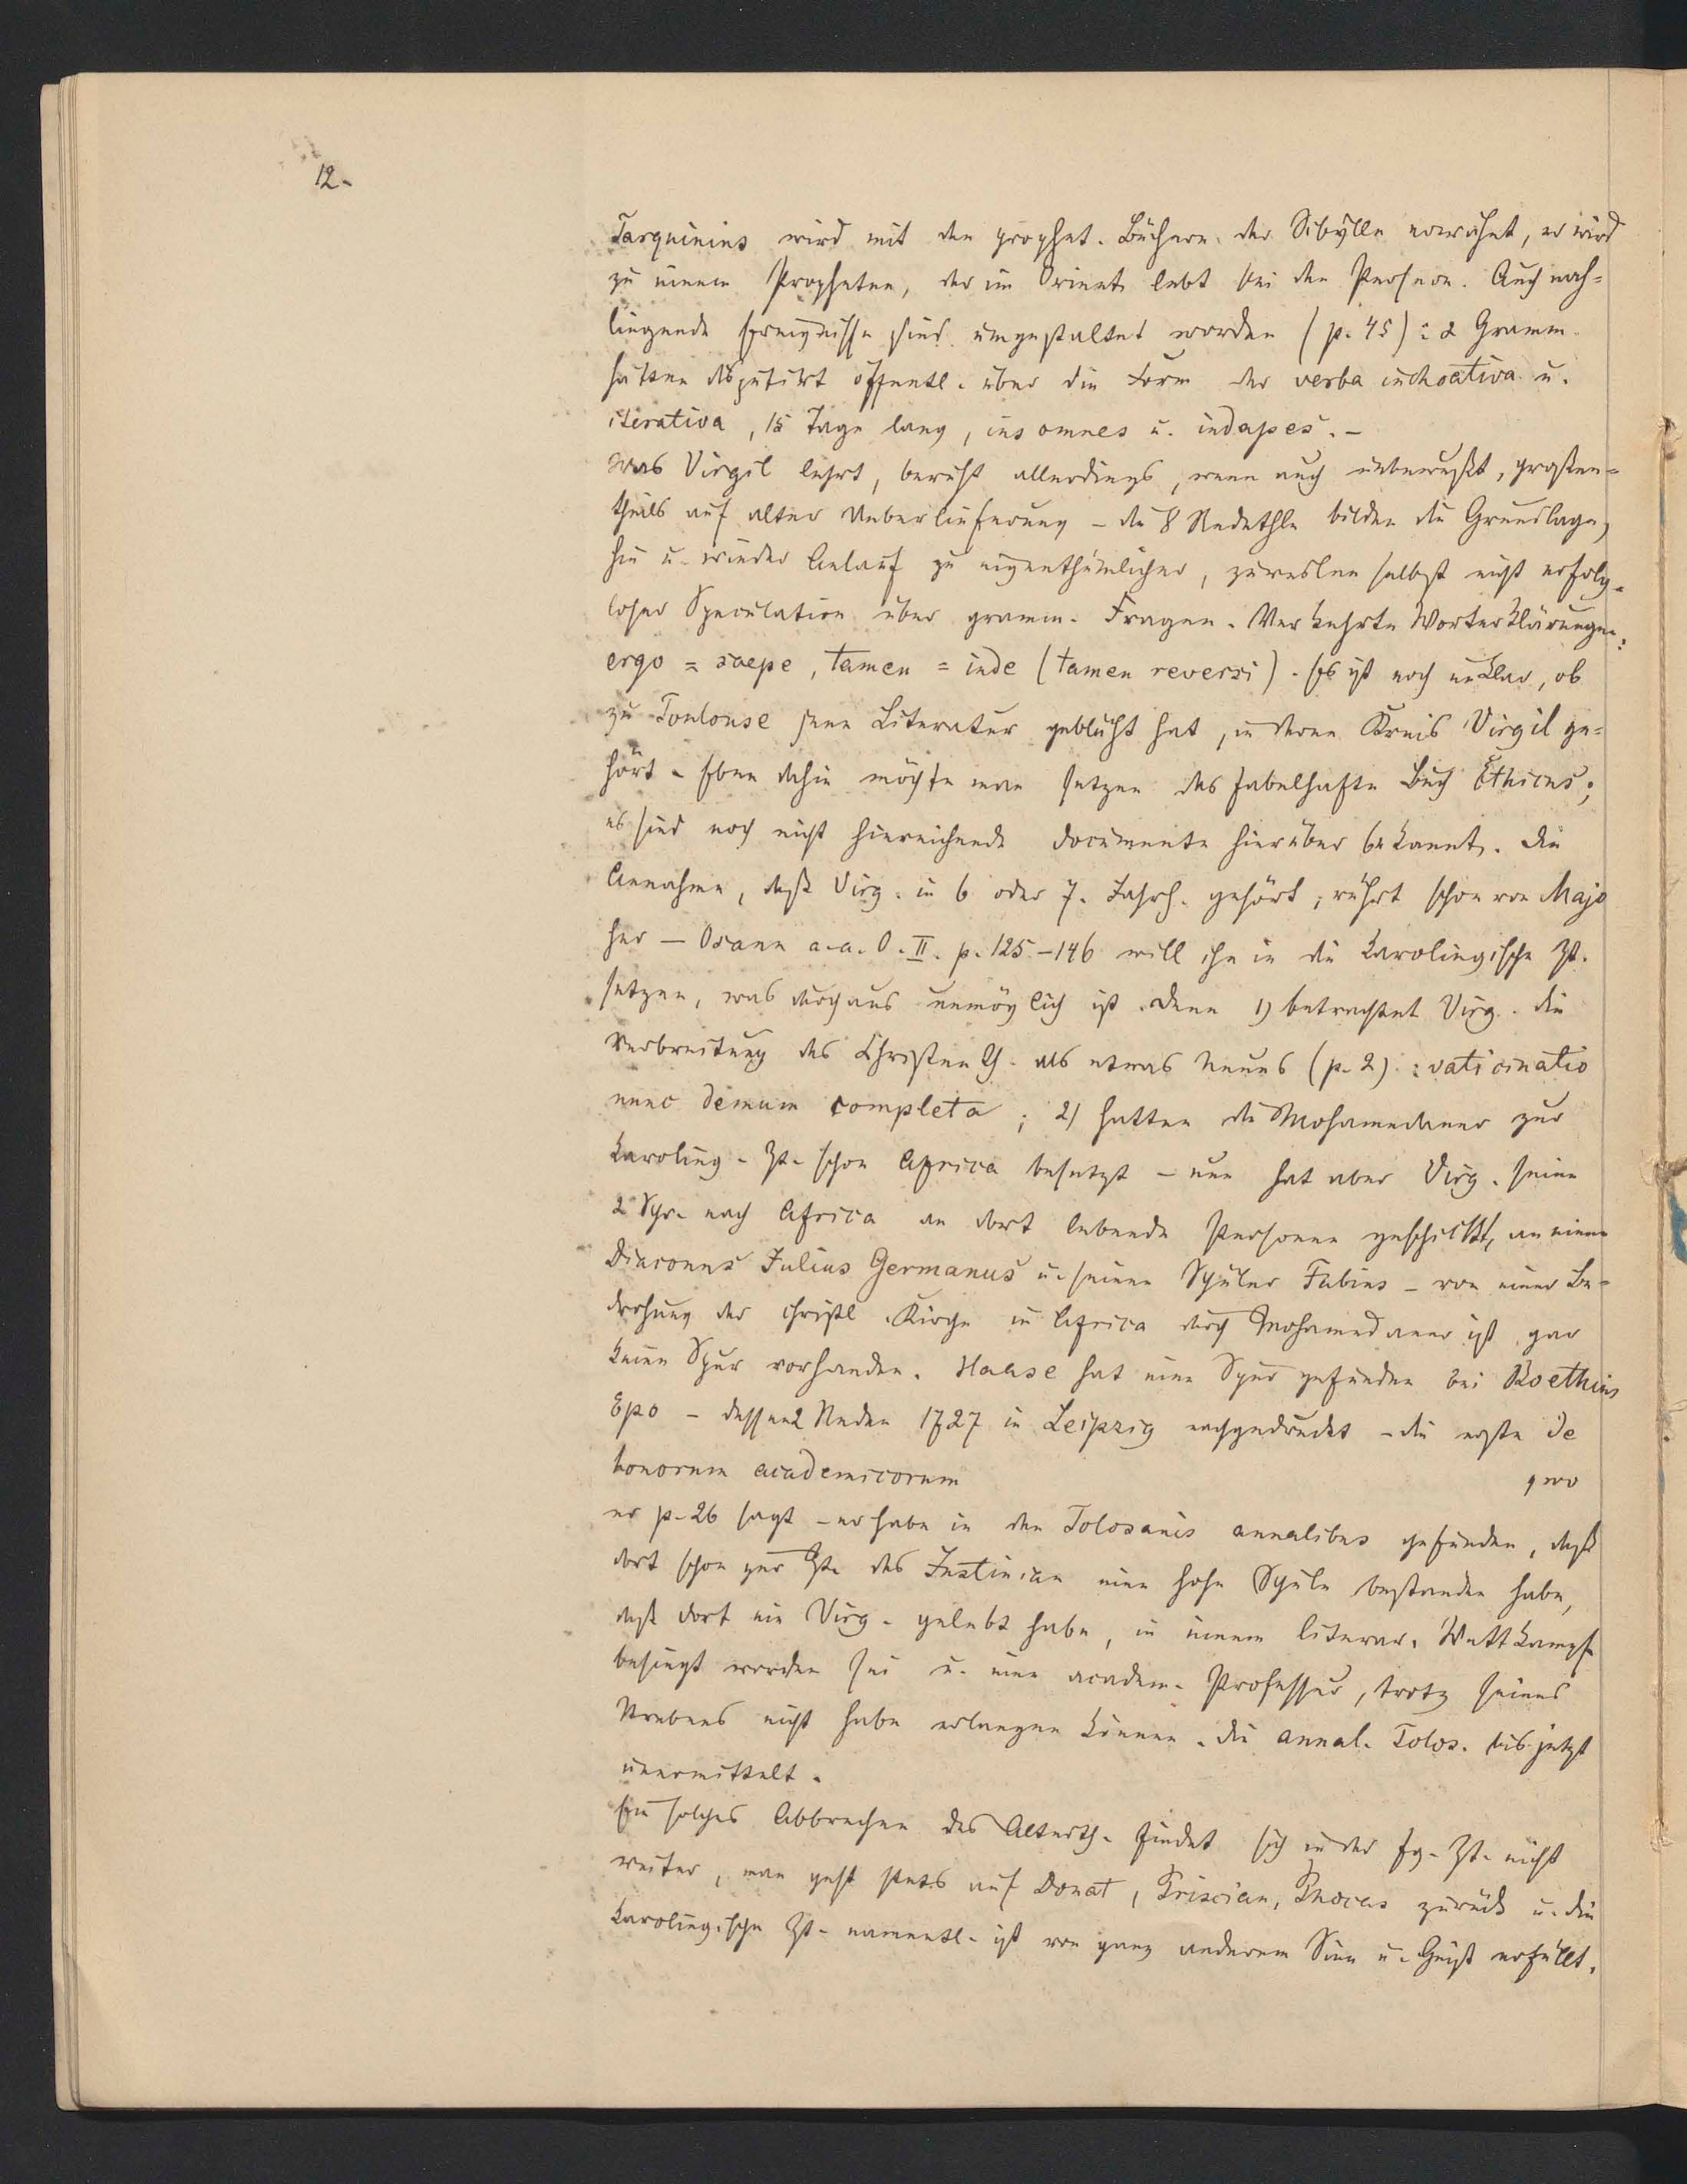 12.
Tarquinius wird mit den prophet. Büchern der Sibylle erwähnt, er wird
zu einem Propheten, der im Orient lebt bei den Persern. Auch nah-
liegende Ereignisse sind umgestaltet worden (p. 45): 2 Gramm.
hätten disputirt öffentl. über die Form der verba inchoativa u.
iterativa, 15 Tage lang, insomnes u. indapes. -
Was Virgil lehrt, beruht allerdings, wenn auch unbewußt, großen-
theils auf alter Ueberlieferung - die 8 Redethle bilden die Grundlage,
hie u. wieder Anlauf zu eigenthümlicher, zuweilen selbst nicht erfolg-
loser Speculation über gramm. Fragen. Verkehrte Worterklärungen:
ergo = saepe, tamen = inde (tamen reversi). Es ist noch unklar, ob
zu Toulouse jene Literatur geblüht hat, in deren Kreis Virgil ge-
hört. Eben dahin möchte man setzen das fabelhafte Buch Ethicus;
es sind noch nicht hinreichende Documente hierüber bekannt. Die
Annahme, daß Virg. in 6 oder 7. Jahrh. gehört, rührt schon von Majo
her - Osann a. a. O. II. p. 125-146 will ihn in die karolingische Zt.
setzen, was durchaus unmöglich ist. Denn 1) betrachtet Virg. die
Verbreitung des Christenth. als etwas Neues (p. 2): vaticinatio
nunc demum completa; 2) hatten die Mohamedaner zur
karoling. Zt. schon Africa besetzt - nun hat aber Virg. seine
2 Schr. nach Africa an dort lebende Personen geschickt, an einen
Diaconus Julius Germanus u. seinen Schüler Fabius - von einer Be-
drohung der christl. Kirche in Africa durch Mohamedaner ist gar
keine Spur vorhanden. Haase hat eine Spur gefunden bei Boethius
Epo - dessen 2 Reden 1727 in Leipzig nachgedruckt - die erste de
honorum academicorum , wo
er p. 26 sagt - er habe in den Tolosanis annalibus gefunden, daß
dort schon zur Zt. des Justinian eine hohe Schule bestanden habe,
daß dort ein Virg. gelebt habe, in einem literar. Wettkampf
besiegt worden sei u. eine academ. Professur, trotz seines
Strebens nicht habe erlangen können. Die annal. Tolos. bis jetzt
unermittelt.
Ein solches Abbrechen des Alterth. findet sich in der fg. Zt. nicht
weiter, man geht stets auf Donat, Priscian, Phocas zurück u. die
karolingische Zt. namentl. ist von ganz anderem Sinn u. Geist erfüllt.